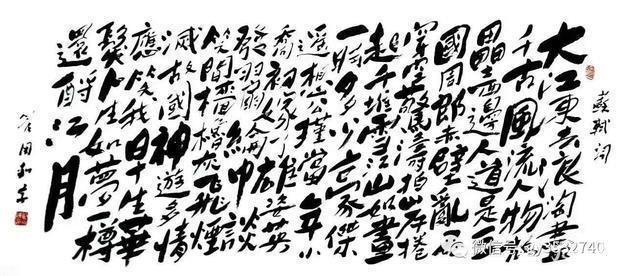 蘇軾詞
大江東去浪淘盡
千古風流人物故
壘西邊人道是三
國周郎赤壁亂石
穿空驚濤拍岸捲
起千堆雪江山如畫
一時多少豪傑
遥想公瑾當年小
喬初嫁了雄姿英
發羽扇綸巾談
笑間檣櫓灰飛煙
滅故國神遊多情
應笑我早生華
髮人生如夢一樽
還酹江月
管用和书
微信号: